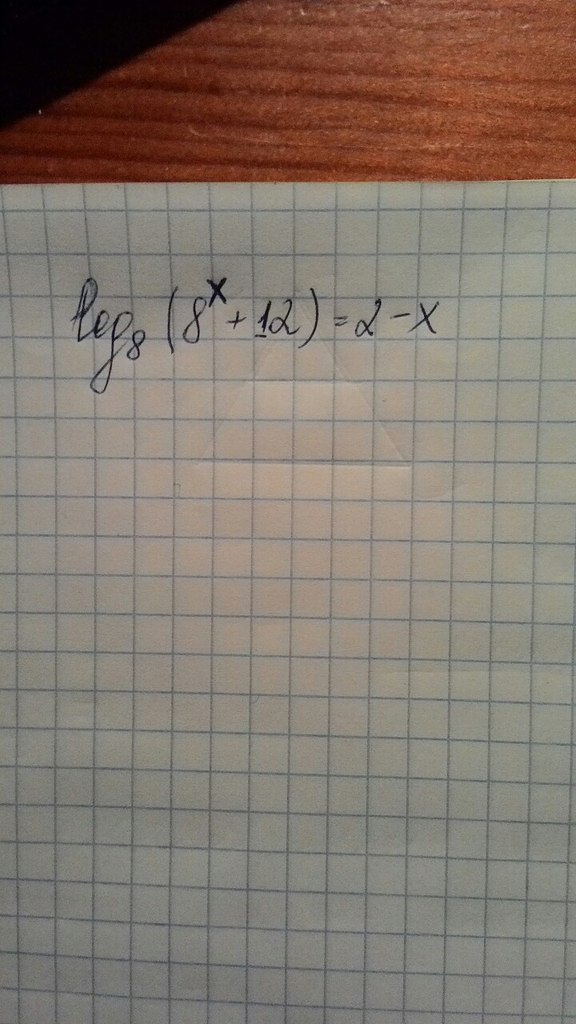 log₈ (8ˣ + 12) = 2 - x